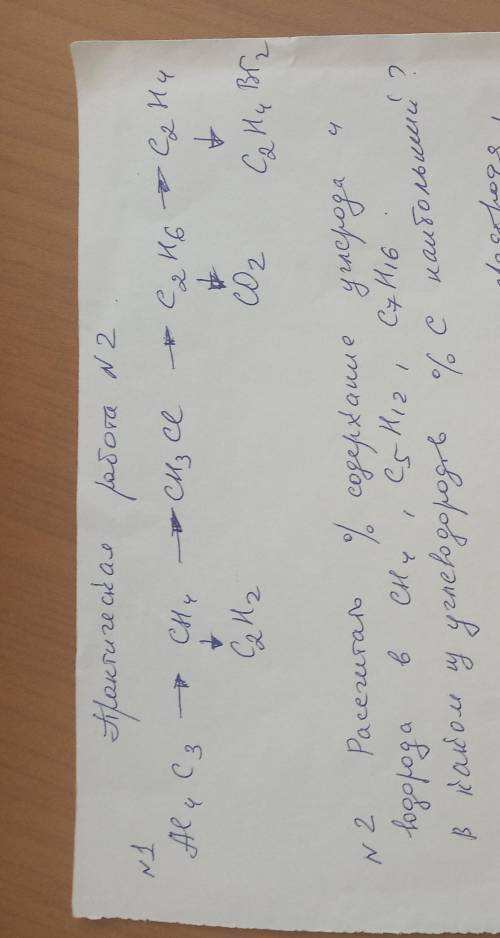 Практическая работа N2.
N1
Al4C3 → CH4 → CH3Cl → C2H6 → C2H4
↓ ↓ ↓
C2H2 CO2 C2H4Br2
N2 Рассчитать % содержание углерода и
водорода в CH4, C5H12, C7H16.
В каком из углеводородов % C наибольший?